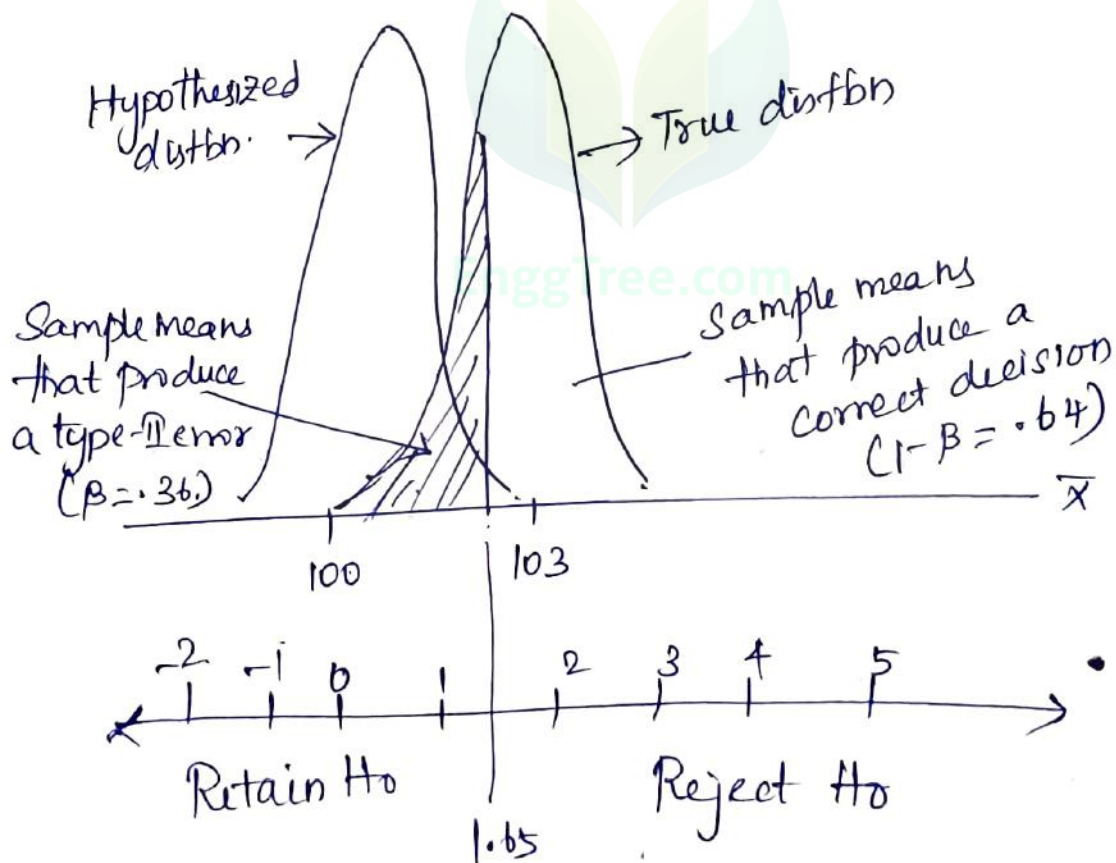 Hypothesized
distbn.
True distbn
EnggTree.com
Sample means
that produce
a type-II error
(β = .36.)
Sample means
that produce a
correct decision
(1-β = .64)
X̄
100
103
-2 -1 0 1 2 3 4 5
Retain Ho
Reject Ho
1.65